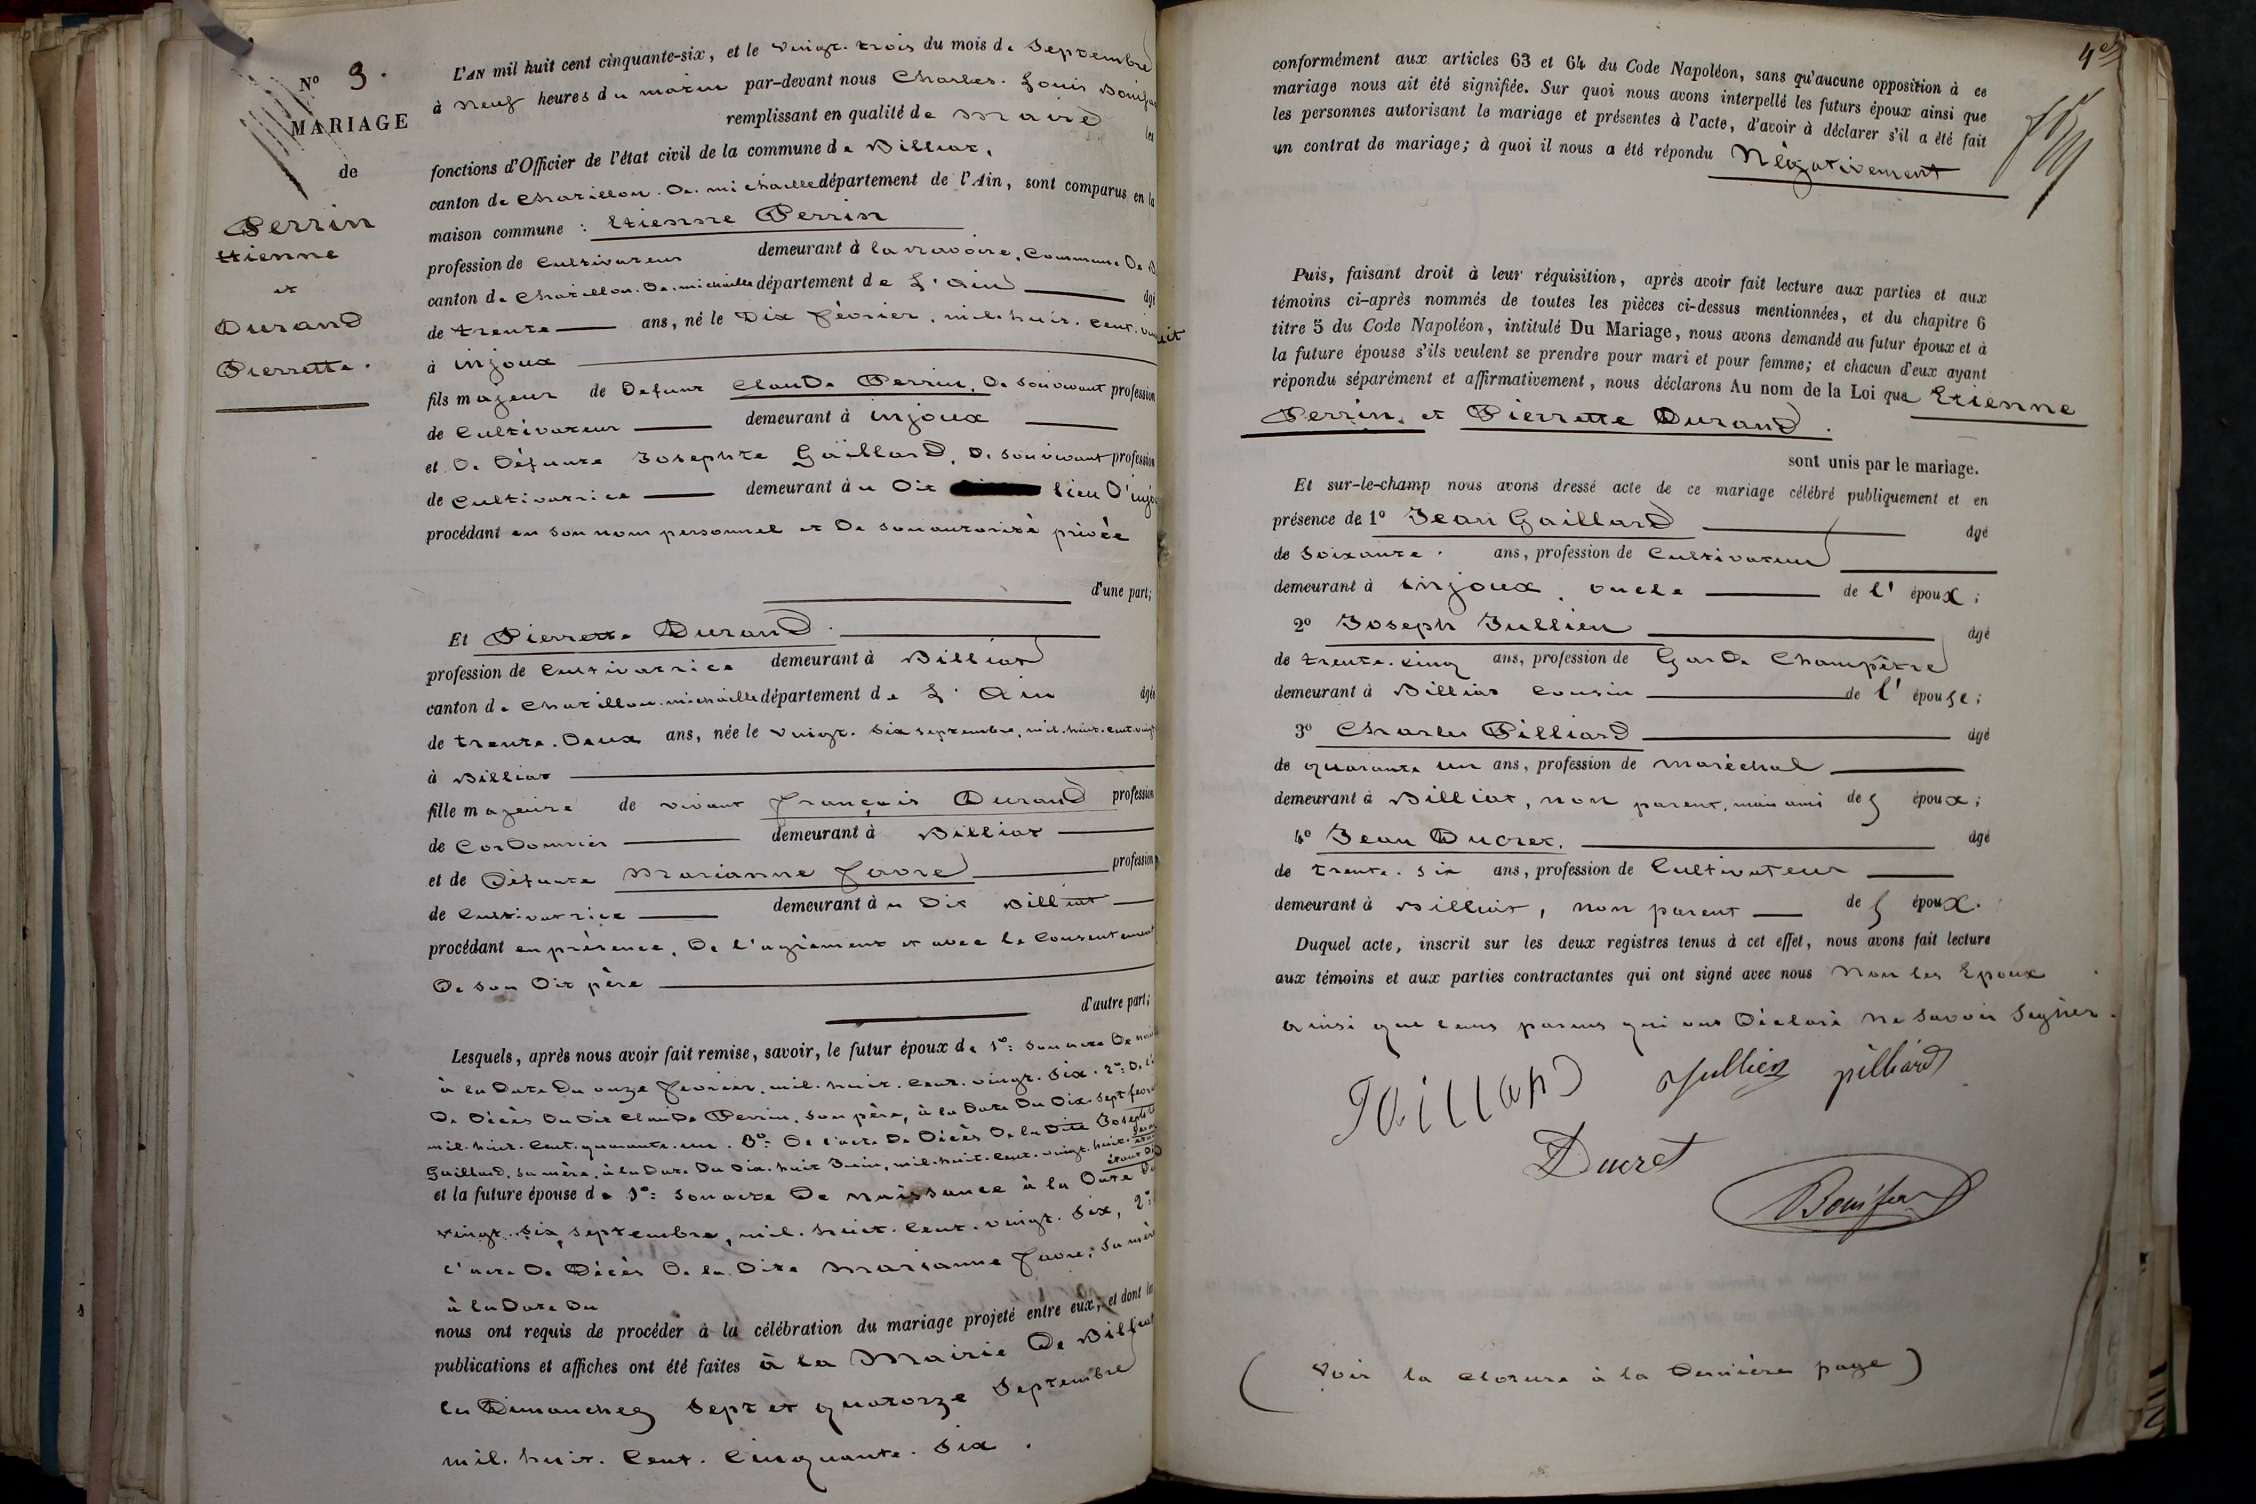 N° 9.
MARIAGE
de
Perrin
Etienne
et
Durand
Pierrette.
L'AN mil huit cent cinquante-six, et le vingt-trois du mois de Septembre
à neuf heures du matin par-devant nous Charles-Louis
remplissant en qualité de Maire les
fonctions d'Officier de l'état civil de la commune de Billiat,
canton de Chatillon-De-michaille département de l'Ain, sont comparus en la
maison commune : Etienne Perrin
profession de Cultivateur demeurant à la navoire, Commune De B
canton de Chatillon-De-michaille département de L'Ain âgé
de trente ans, né le Dix février, mil-huit-cent-
à injoux
fils majeur de Defunt Claude Perrin, De son vivant profession
de Cultivateur demeurant à injoux
et De Défunte Josephte Gaillard, De son vivant profession
de Cultivatrice demeurant àu Dit lieu D'injoux
procédant en son nom personnel et De son autorité privée
d'une part;
Et Pierrette Durand.
profession de Cultivatrice demeurant à Billiat
canton de Chatillon-michaille département de L'Ain âgée
de trente-Deux ans, née le vingt-six septembre, mil-huit-cent-vingt
à Billiat
fille majeure de vivant françois Durand profession
de Cordonnier demeurant à Billiat
et de Défunte Marianne favre profession
de Cultivatrice demeurant àu Dit Billiat
procédant en présence, De l'agrèment et avec le Consentement
De son Dit père
d'autre part;
Lesquels, après nous avoir fait remise, savoir, le futur époux de 1°: son acte De
à la Date Du onze fevrier, mil-huit-cent-vingt-six. 2°: De
De Décès Du Dit Claude Perrin, son père, à la Date Du Dix-sept
mil-huit-cent-quarante-un. 3°: De l'acte De Décès De la Dite Josephte
Gaillard, sa mère, à la Date Du Dix-huit Juin, mil-huit-cent-vingt-huit
et la future épouse de 1°: son acte De naissance à la Date Du
vingt-six, septembre, mil-huit-cent-vingt-six, 2°:
l'acte De Décès De la Dite Marianne favre, sa mère
à la Date Du
nous ont requis de procéder à la célébration du mariage projeté entre eux, et dont les
publications et affiches ont été faites à la Mairie De Billiat
les Dimanches sept et quatorze Septembre
mil-huit-cent-cinquante-six.
conformément aux articles 63 et 64 du Code Napoléon, sans qu'aucune opposition à ce
mariage nous ait été signifiée. Sur quoi nous avons interpellé les futurs époux ainsi que
les personnes autorisant le mariage et présentes à l'acte, d'avoir à déclarer s'il a été fait
un contrat de mariage; à quoi il nous a été répondu Négativement
Puis, faisant droit à leur réquisition, après avoir fait lecture aux parties et aux
témoins ci-après nommés de toutes les pièces ci-dessus mentionnées, et du chapitre 6
titre 5 du Code Napoléon, intitulé Du Mariage, nous avons demandé au futur époux et à
la future épouse s'ils veulent se prendre pour mari et pour femme; et chacun d'eux ayant
répondu séparément et affirmativement, nous déclarons Au nom de la Loi que Etienne
Perrin, et Pierrette Durand.
sont unis par le mariage.
Et sur-le-champ nous avons dressé acte de ce mariage célébré publiquement et en
présence de 1° Jean Gaillard âgé
de soixante. ans, profession de Cultivateur
demeurant à injoux, oncle de l' époux;
2° Joseph Jullien âgé
de trente-cinq ans, profession de Garde Champêtre
demeurant à Billiat Cousin de l' épouse;
3° Charles Pilliard âgé
de quarante un ans, profession de maréchal
demeurant à Billiat, non parent, mais ami des époux;
4° Jean Ducret. âgé
de trente-six ans, profession de Cultivateur
demeurant à Billiat, non parent des époux.
Duquel acte, inscrit sur les deux registres tenus à cet effet, nous avons fait lecture
aux témoins et aux parties contractantes qui ont signé avec nous Non les Epoux
ainsi que leurs parens qui ont Déclaré ne savoir Segner.
Gaillard Jullien pilliard
Ducret
(Voir la cloture à la Dernière page)